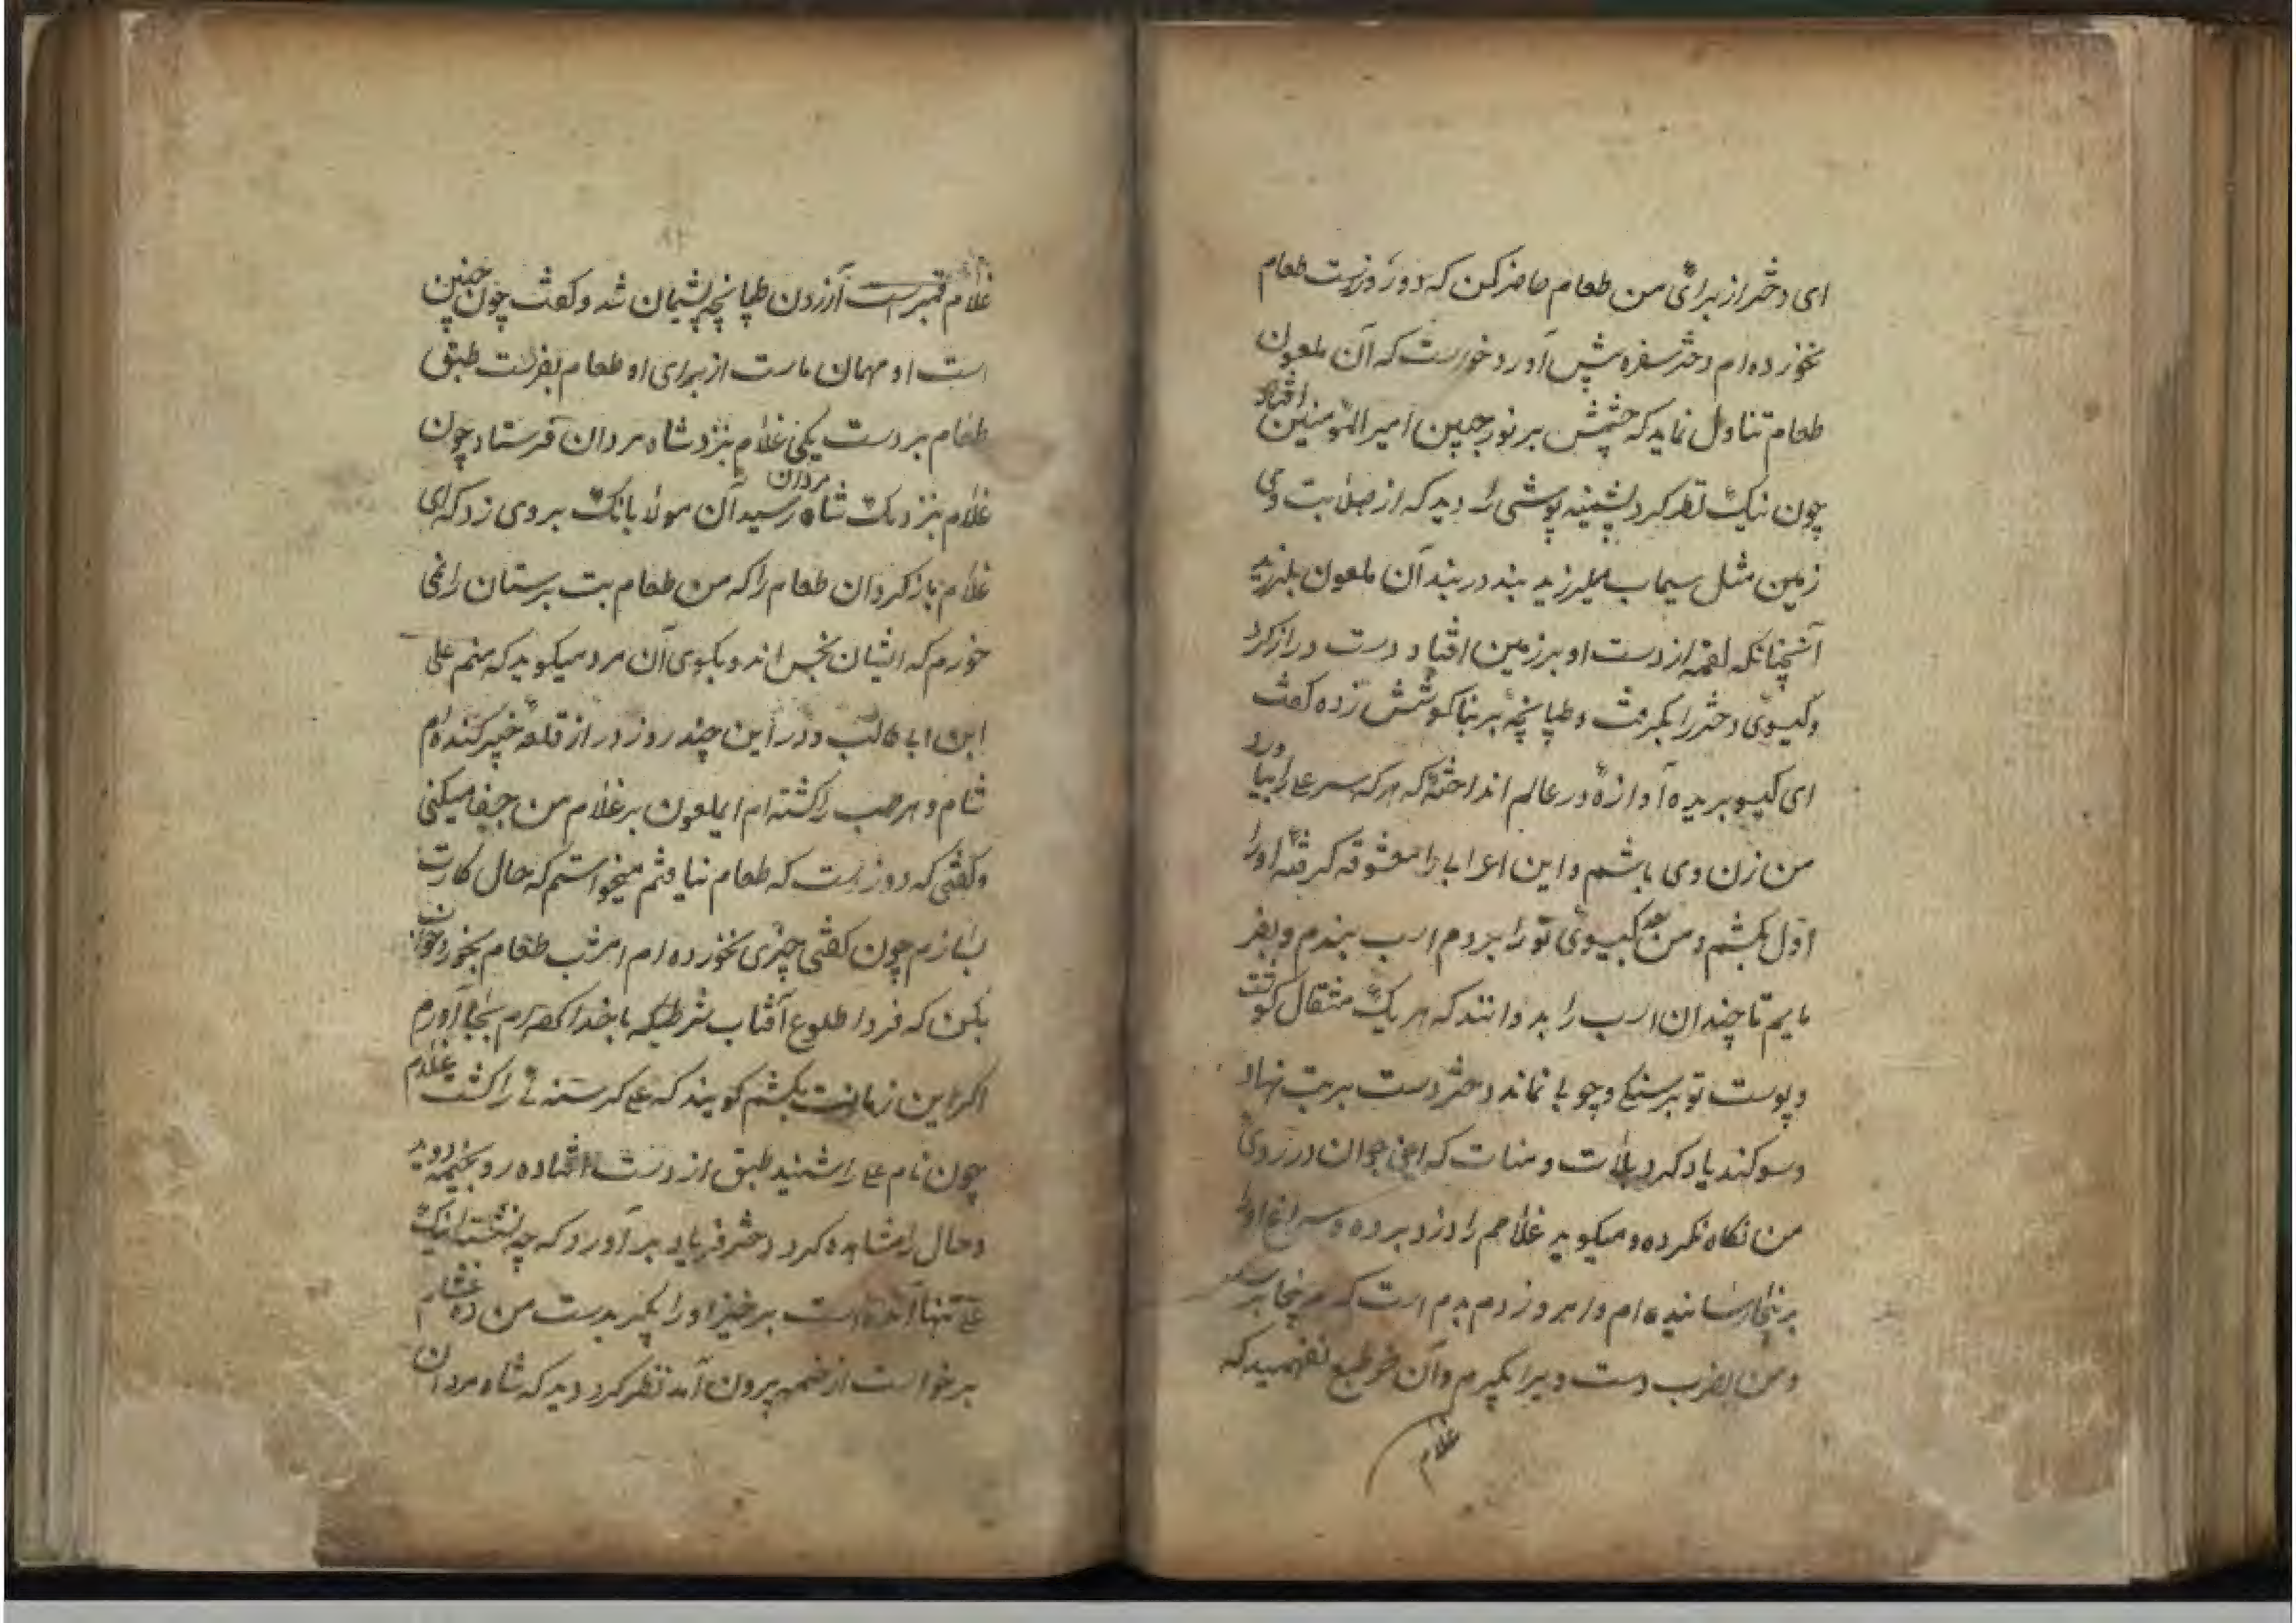 ای دختر از برائی من طعام حاضر کن که دو روزست طعام
نخورده ام دختر سفره پیش آورد خورست که آن ملعون
طعام تناول نماید که چشمش بر نور جبین امیر المؤمنین افتاد
چون نیک نظر کرد پشینه پوشی را دید که از صلابت وی
زمین مثل سیماب میلرزید بند در بند آن ملعون بلرزید
آنچنانکه لقمه از دست او بر زمین افتاد دست دراز کرد
و کیسوی دختر را بکرفت و طپانچه بر بناکوشش زده کفت
ای کیسو بریده آوازه در عالم انداختهٔ که هر که سر علی را بیاورد
من زن وی باشم و این اعرابی را معشوقه کرفتهٔ اورا
اول بکشم و من کیسوی تورا بر دم اسب بندم و بفر
مایم تا چندان اسب را بدوانند که هر یک مثقال کوشت
و پوست تو بر سنکی و چوبا نماند دختر دست بر بت نهاد
و سوکند یاد کرد بلات و منات که این جوان در روی
من نکاه نکرده و میکوید غلامم را دزد برده و سراغ اورا
ام و امروز دم بدم است که
و من دست ویرا بکیرم و آن خر طبع نفهمید که
غلام
غلام قنبرست آززدن طپانچه پشیمان شد و کفت چون چنین
است او مهمان ماست از برای او طعام بفرست طبق
طعام بر دست یکی غلام بنزد شاه مردان فرستاد چون
غلام بنزدیک شاه مردان رسید آن مولا بانک بروی زد که ای
غلام باز کردان طعام را که من طعام بت پرستان را نمی
خورم که ایشان نجس اند و بکوی آن مرد میکوید که منم علی
ابن ابی طالب و در این چند روز در از قلعه خیبر کنده ام
شام و مرحب را کشته ام ایملعون بر غلام من جفا میکنی
و کفتی که دو روزست که طعام نیافتم میخواستم که حال کارت
بسازم چون کفتی چیزی نخورده ام امشب طعام بخور و خواب
بکن که فردا طلوع آفتاب شرطیکه با خدا کرده ام بجا آورم
اکر این زمانت بکشم کویند که علی کرسنه را کشت غلام
چون نام علی را شنید طبق از دست افتاده رو بخیمه دوید
و حال را مشاهده کرد دختر فریاد بر آورد که چه نشسته اینک
علی تنها آمده است برخیز اورا بکیر بدست من ده
برخواست از خیمه بیرون آمد نظر کرد دید که شاه مردان